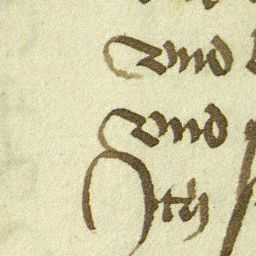 vnd
vnd
Ich